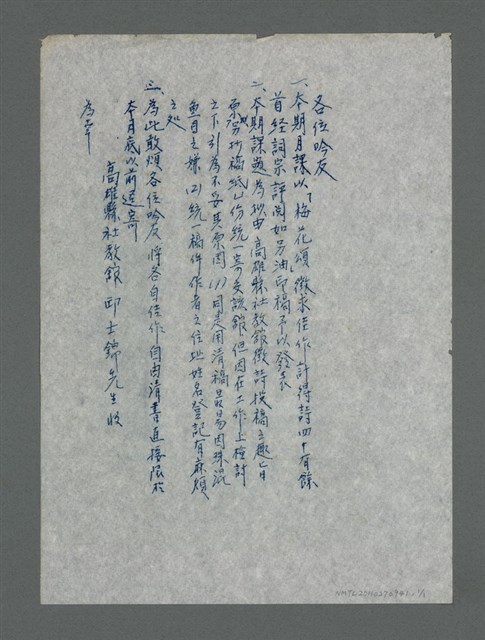 各位吟友
一、本期月課以「梅花頌」徵求佳作計得詩四十有餘
首経詞宗評閱如另油印稿予以發表
二、本期課題為拟由高雄縣社教館徵詩投稿主題旨
原另抄稿紙份統一寄交該館但因在工作上檢討
之下引為不妥其原因(1)同是用清稿最易因珠混
魚目之嫌(2)統一稿件作者之住址姓名登記有麻煩
之処
三、為此敢煩各位吟友將各自佳作自由清書直接限於
本月底以前逕寄
高雄縣社教館邱士錦先生收
為幸
NMTL20110270941